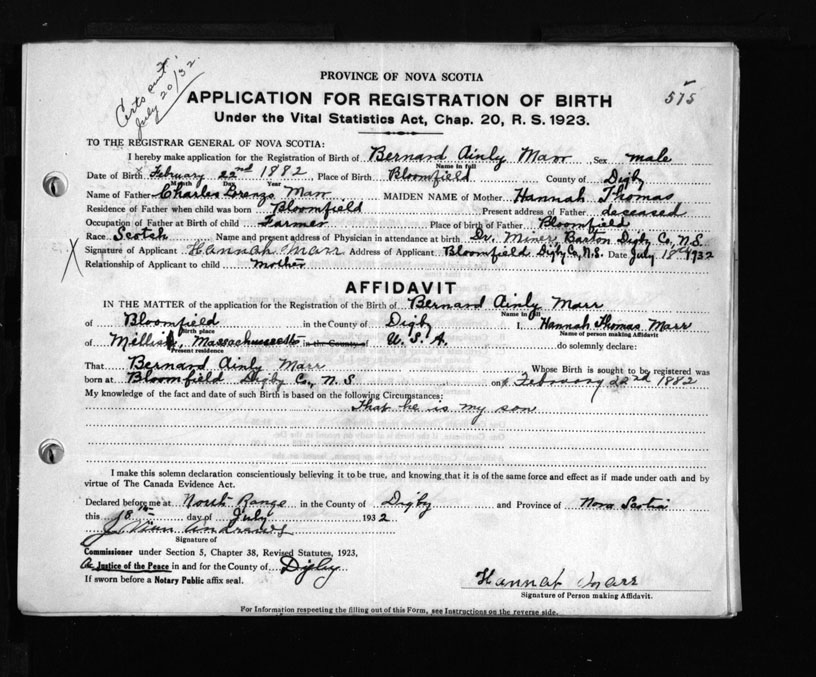 Certs sent
July 20/32
575
PROVINCE OF NOVA SCOTIA
APPLICATION FOR REGISTRATION OF BIRTH
Under the Vital Statistics Act, Chap. 20, R. S. 1923.
TO THE REGISTRAR GENERAL OF NOVA SCOTIA:
I hereby make application for the Registration of Birth of Bernard Ainly Marr Sex male
Name in full
Date of Birth February 22nd 1882 Place of Birth Bloomfield County of Digby
Month Day Year
Name of Father Charles Lorenzo Marr MAIDEN NAME of Mother Hannah Thomas
Residence of Father when child was born Bloomfield Present address of Father deceased
Occupation of Father at Birth of child Farmer Place of birth of Father Bloomfield
Race Scotch Name and present address of Physician in attendance at birth Dr. Miner, Barton Digby Co, N.S.
X Signature of Applicant Hannah Marr Address of Applicant Bloomfield Digby Co, N.S. Date July 18th 1932
Relationship of Applicant to child mother
AFFIDAVIT
IN THE MATTER of the application for the Registration of the Birth of Bernard Ainly Marr
Name in full
of Bloomfield in the County of Digby I, Hannah Thomas Marr
Birth place Name of person making Affidavit
of Massachusetts in the County of U. S. A. do solemnly declare:
Present residence
That Bernard Ainly Marr Whose Birth is sought to be registered was
born at Bloomfield Digby Co, N. S on February 22nd 1882
My knowledge of the fact and date of such Birth is based on the following Circumstances:
That he is my son
I make this solemn declaration conscientiously believing it to be true, and knowing that it is of the same force and effect as if made under oath and by
virtue of The Canada Evidence Act.
Declared before me at North Range in the County of Digby and Province of Nova Scotia
this 18th day of July 1932
Andrews
Signature of
Commissioner under Section 5, Chapter 38, Revised Statutes, 1923,
Justice of the Peace in and for the County of Digby
If sworn before a Notary Public affix seal.
Hannah Marr
Signature of Person making Affidavit.
For Information respecting the filling out of this Form, see Instructions on the reverse side.